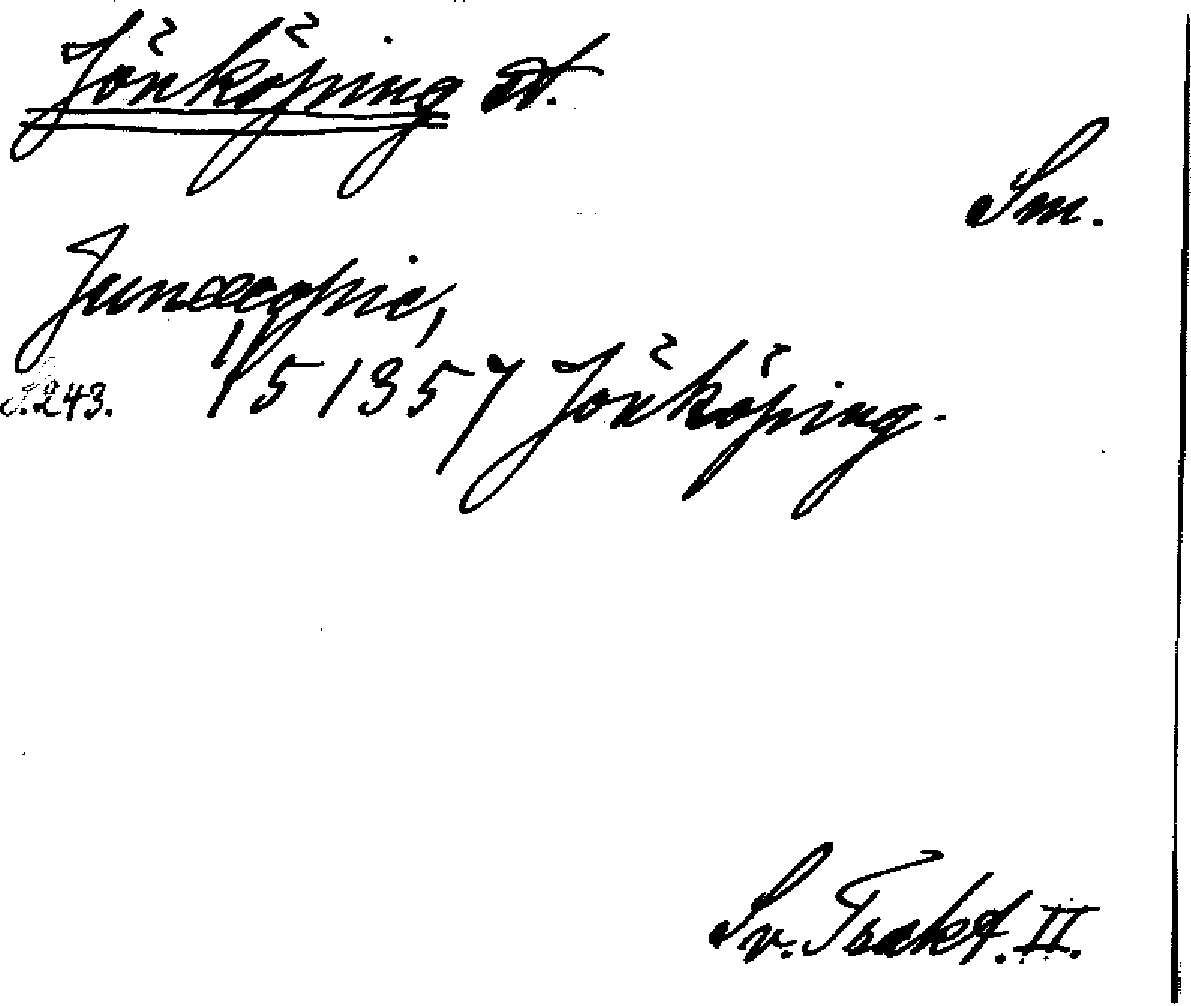 Jönköping st.
Sm.
Junæcopie,
S.243. 1/5 1357 Jönköping.
Sv. Trakt. II.